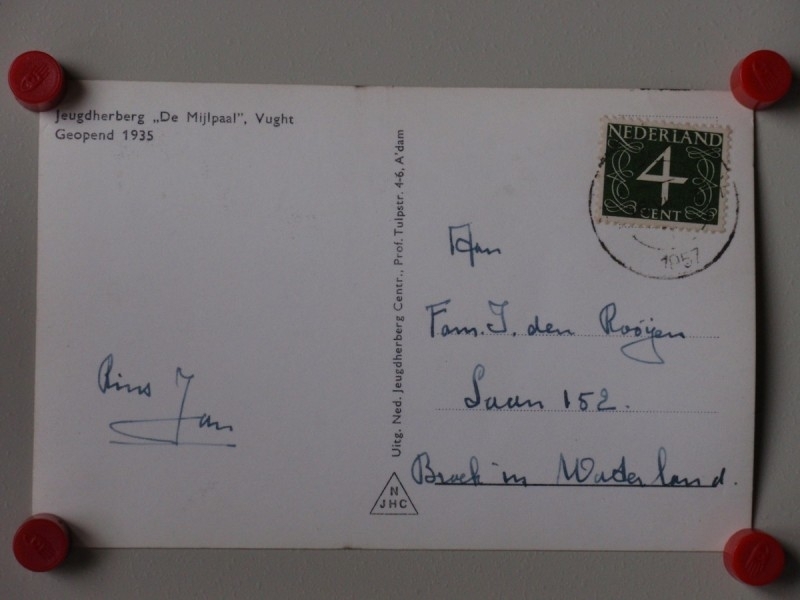 Jeugdherberg „De Mijlpaal”, Vught
Geopend 1935
Uitg. Ned. Jeugdherberg Centr., Prof. Tulpstr. 4-6, A'dam
NEDERLAND
4
CENT
1957
Aan
Fam. J. den Rooijen
Laan 152.
Broek in Waterland.
Rins Jan
N
JHC